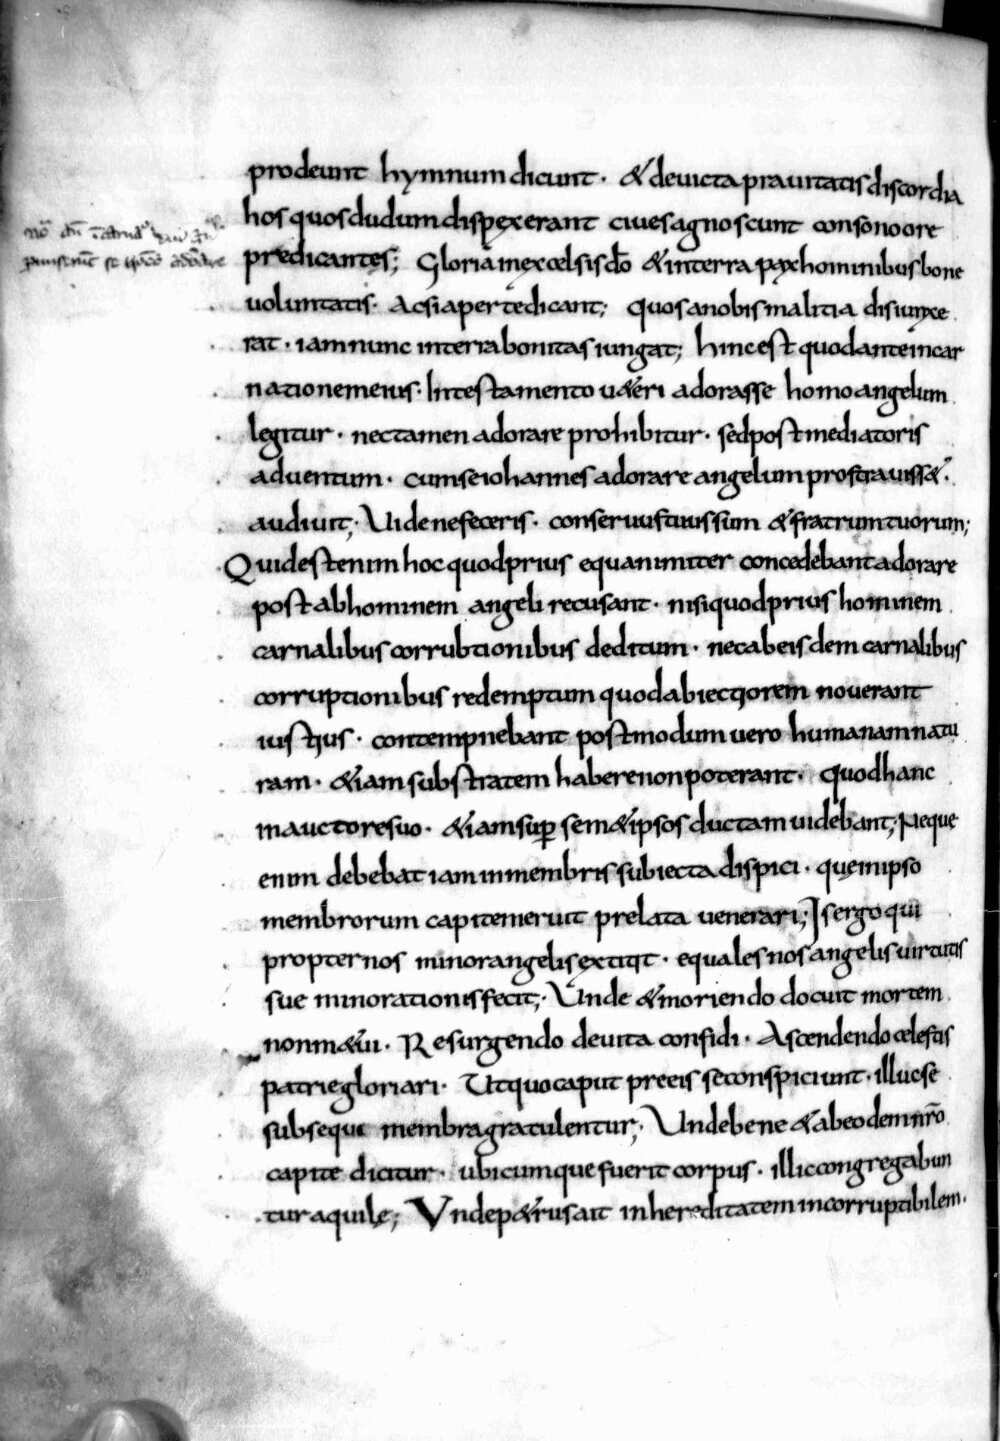 prodeunt hymnum dicunt. & deuicta prauitatis discordia
hos quos dudum dispexerant ciues agnoscunt consono ore
predicantes; Gloria in excelsis dō & in terra pax hominibus bone
uoluntatis. Ac si aperte dicant; quos a nobis malitia disiunxe
rat. iam nunc in terra bonitas iungat; hinc est quod ante incar
nationem eius. In testamento u&eri adorasse homo angelum
legitur. nec tamen adorare prohibitur. sed post mediatoris
aduentum. cum se iohannes adorare angelum prostrauiss&.
audiuit; Uide ne feceris. conseruus tuus sum & fratrum tuorum;
Quid est enim hoc quod prius equanimiter concedebant adorare
post ab hominem angeli recusant. nisi quod prius hominem
carnalibus corrubtionibus deditum. nec ab eisdem carnalibus
corruptionibus redemptum quod abiectiorem nouerant
iustius. contempnebant postmodum uero humanam natu
ram. &iam substratem habere non poterant. quod hanc
in auctore suo. &iam sup sem&ipsos ductam uidebant; Neque
enim debebat iam in membris subiecta dispici. quę in ipso
membrorum capite meruit prelata uenerari; Is ergo qui
propter nos minor angelis extitit. equales nos angelis uirtutis
sue minorationis fecit; Unde & moriendo docuit mortem
non m&ui. Resurgendo de uita confidi. Ascendendo celestis
patrie gloriari. Ut quo caput preeis se conspiciunt. illuc se
subsequi membra gratulentur; Unde bene & ab eodem nr̄o
capite dicitur. ubicumque fuerit corpus. illic congregabun
tur aquilę; Unde p&rus ait in hereditatem incorruptibilem.